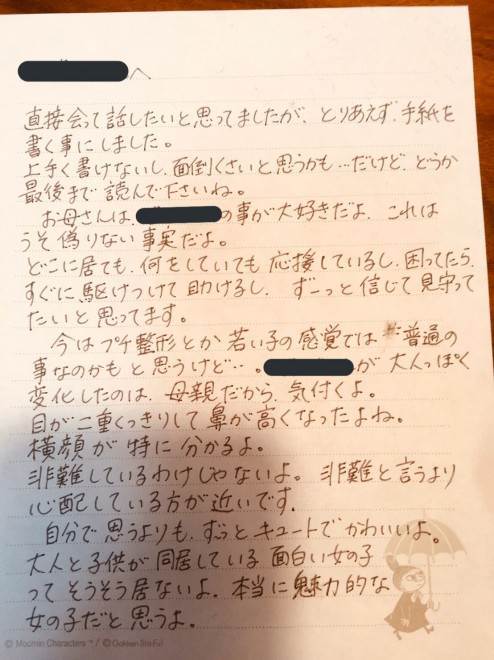 へ
直接会って話したいと思ってましたが、とりあえず、手紙を
書く事にしました。
上手く書けないし、面倒くさいと思うかも…だけど、どうか
最後まで読んで下さいね。
お母さんは、の事が大好きだよ、これは
うそ偽りない事実だよ。
どこに居ても、何をしていても応援しているし、困ってたら、
すぐに駆けつけて助けるし、ずーっと信じて見守って
たいと思ってます。
今はプチ整形とか若い子の感覚では普通の
事なのかもと思うけど…。が大人っぽく
変化したのは、母親だから、気付くよ。
目が二重くっきりして鼻が高くなったよね。
横顔が特に分かるよ。
非難しているわけじゃないよ。非難と言うより
心配している方が近いです。
自分で思うよりも、ずっとキュートでかわいいよ。
大人と子供が同居している面白い女の子
ってそうそう居ないよ、本当に魅力的な
女の子だと思うよ。
© Moomin Characters ™ / © Gakken Sta:Ful